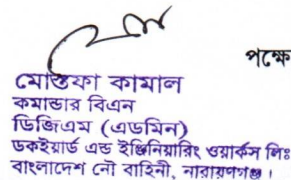 পক্ষে
মোস্তফা কামাল
কমান্ডার বিএন
ডিজিএম (এডমিন)
ডকইয়ার্ড এন্ড ইঞ্জিনিয়ারিং ওয়ার্কস লিঃ
বাংলাদেশ নৌ বাহিনী, নারায়ণগঞ্জ।